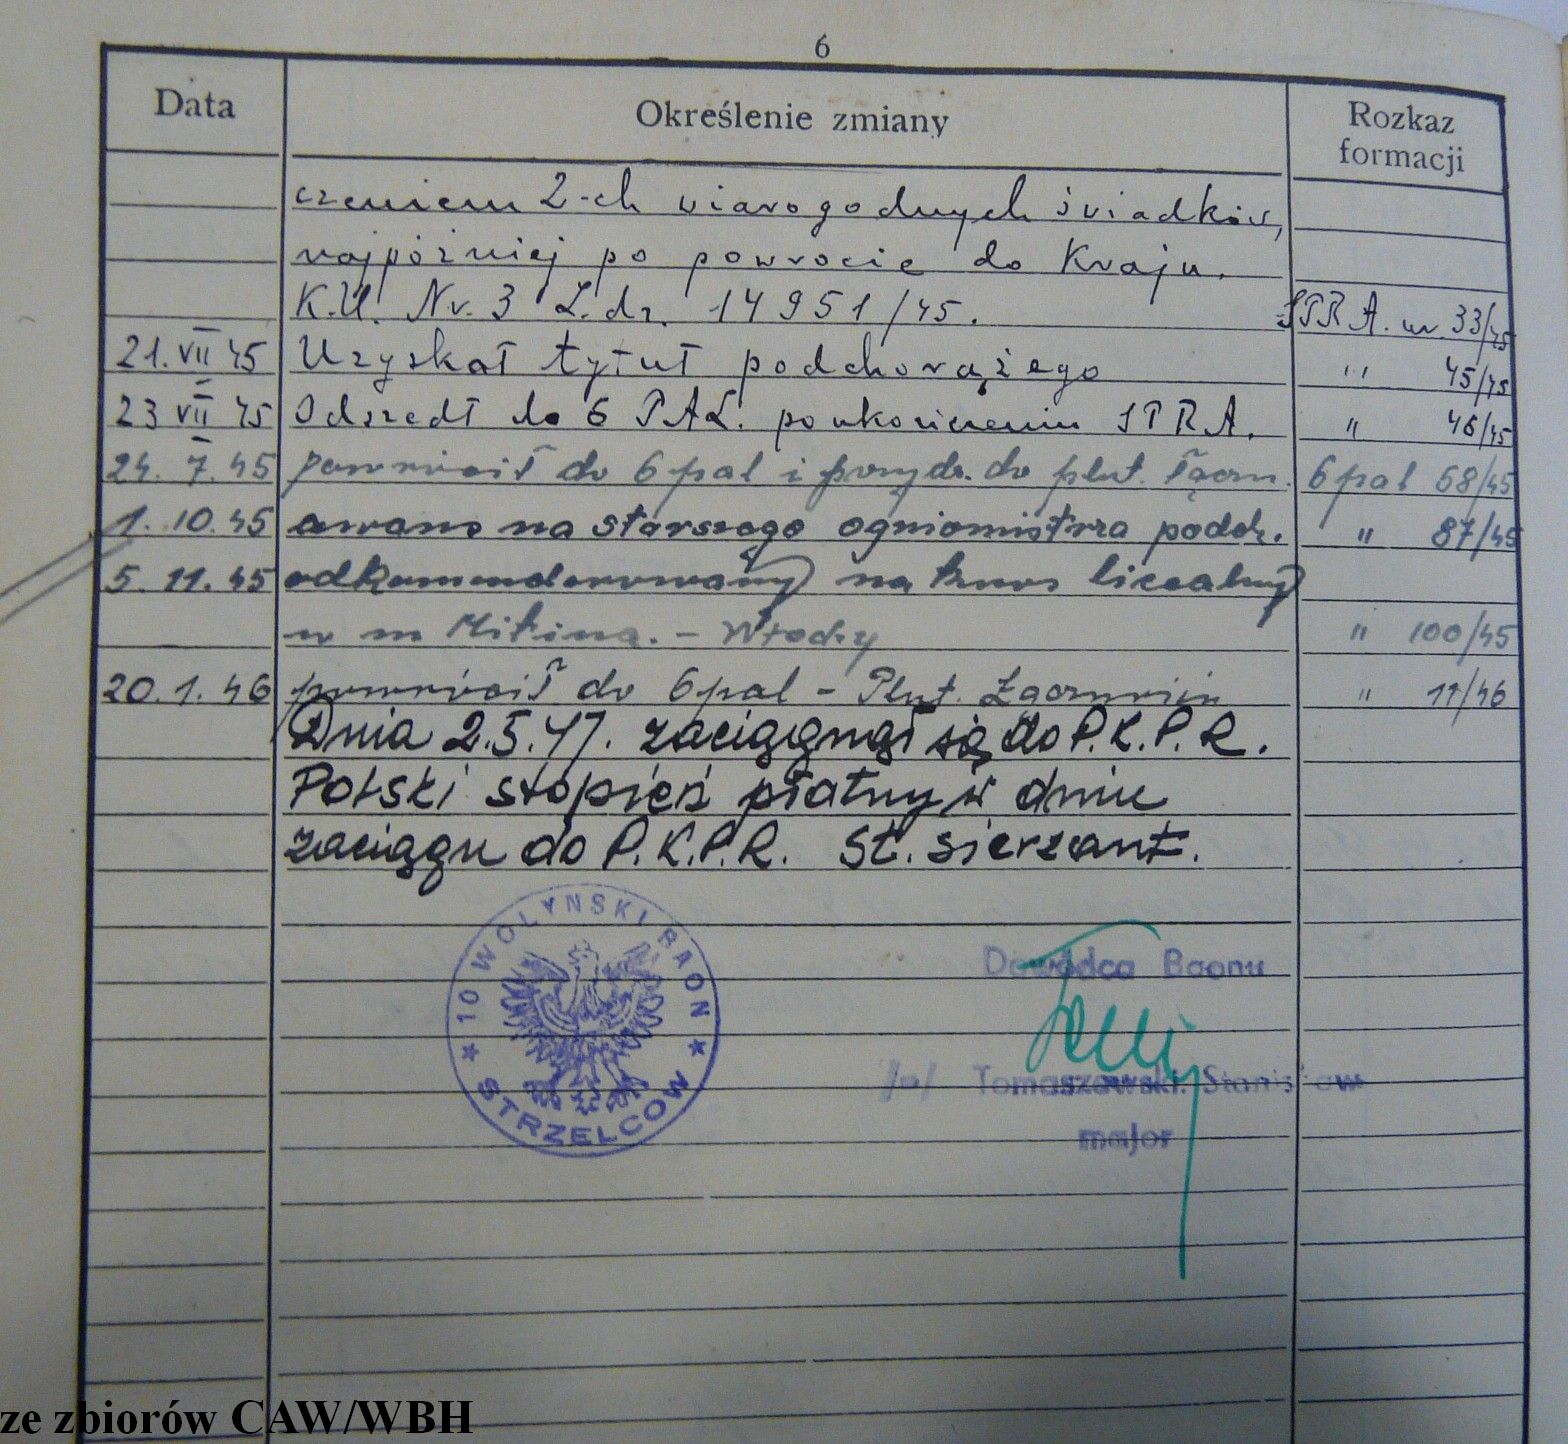 6
Data Określenie zmiany Rozkaz formacji
czeniem 2-ch wiarogodnych świadków,
najpóźniej po powrocie do Kraju.
K.U. Nr. 3 L.dz. 14951/45. SPRA. nr. 33/45
21. VII 45 Uzyskał tytuł podchorążego " 45/45
23 VII 45 Odszedł do 6 PAL. po ukończeniu SPRA. " 46/45
24. 7. 45 powrócił do 6 pal i przydz. do plut. łączn. 6 pal 68/45
1. 10. 45 awans na starszego ogniomistrza podch. " 87/45
5. 11. 45 odkomenderowany na kurs licealny
w m Matina. - Włochy " 100/45
20. 1. 46 powrócił do 6 pal - Plut. Łączności " 11/46
Dnia 2.5.47. zaciągnął się do P.K.P.R.
Polski stopień płatny w dniu
zaciągu do P.K.P.R. St. sierżant.
10 WOŁYŃSKI BAON STRZELCÓW
Dowódca Baonu
/-/ Tomaszowski Stanisław
major
ze zbiorów CAW/WBH